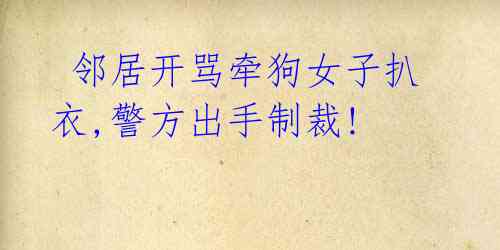 邻居开骂牵狗女子扒
衣,警方出手制裁!